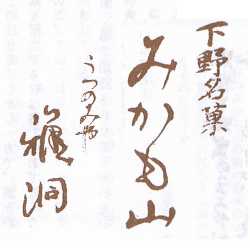 下野名菓
みかも山
うつのみや
雅洞